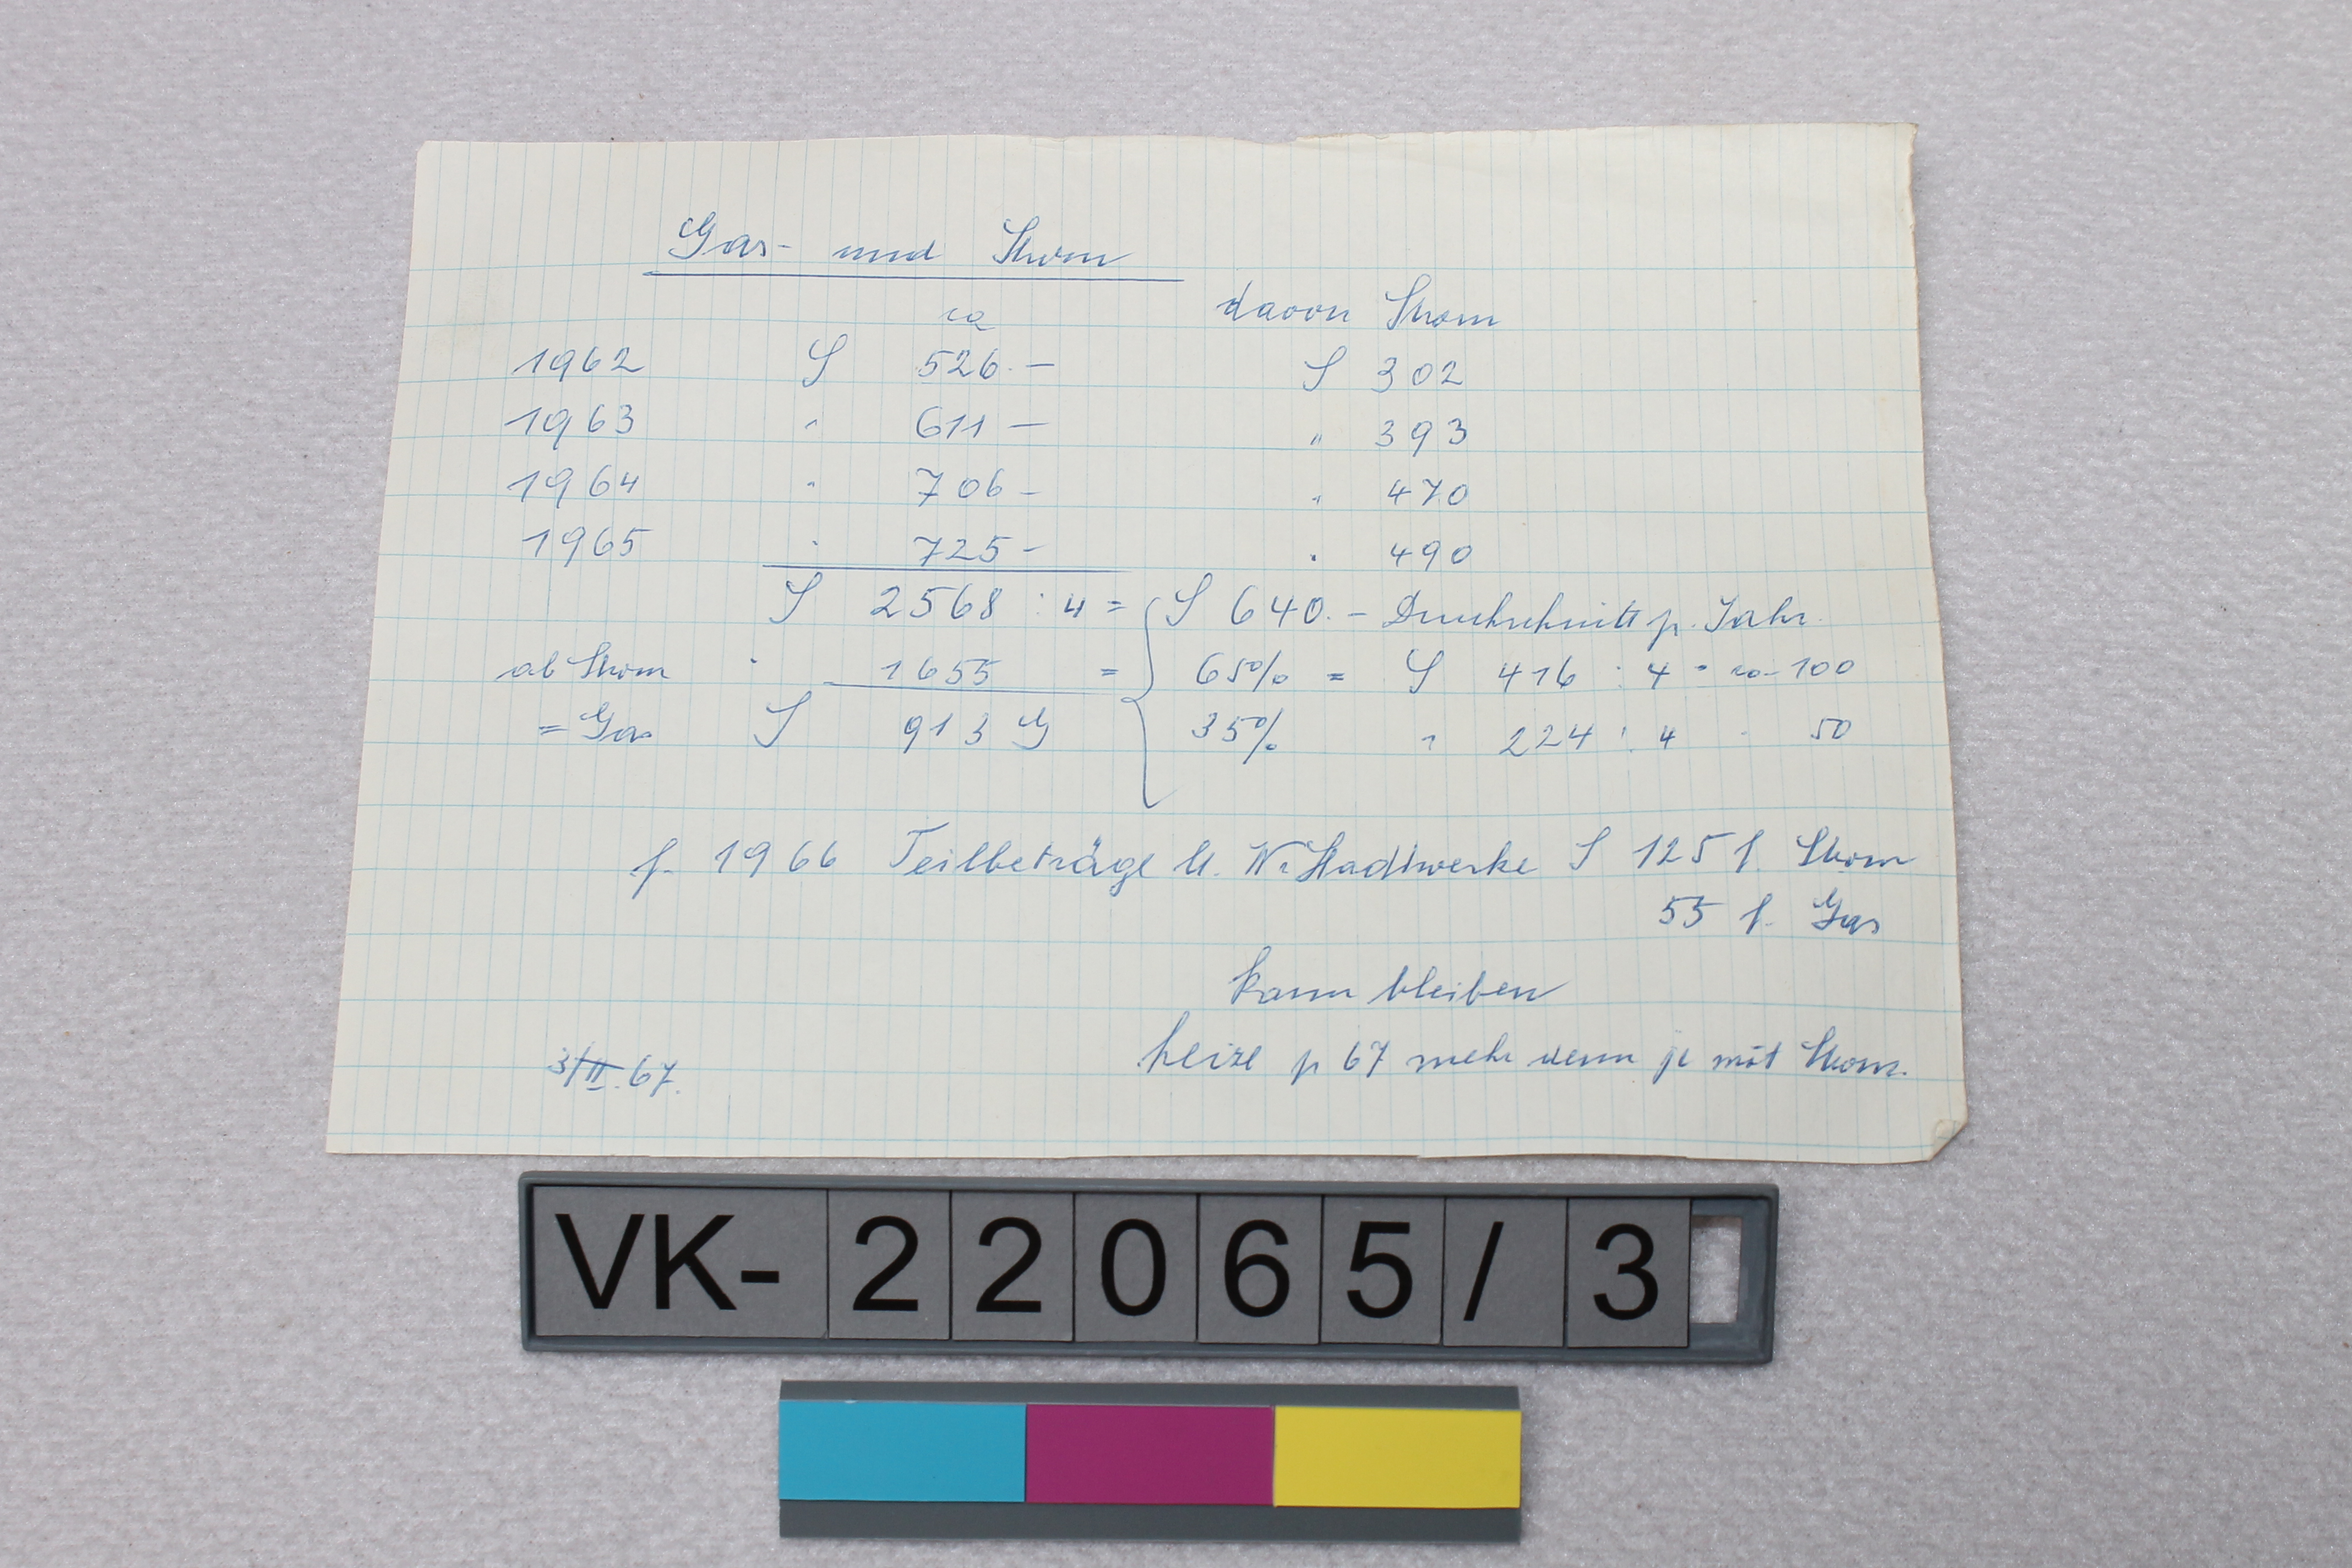 Gas- und Strom
ca davon Strom
1962 S 526.— S 302
1963 " 611— " 393
1964 " 706— " 470
1965 " 725— " 490
S 2568 : 4 = S 640.— Durchschnitt p. Jahr.
ab Strom " 1655 = 65% = S 416 : 4 = ca 100
= Gas S 913 G 35% " 224 : 4 " 50
f. 1966 Teilbeträge lt. Wr. Stadtwerke S 125 f. Strom
55 f. Gas
kann bleiben
heize p 67 mehr denn je mit Strom.
3/II.67.
VK-22065/3